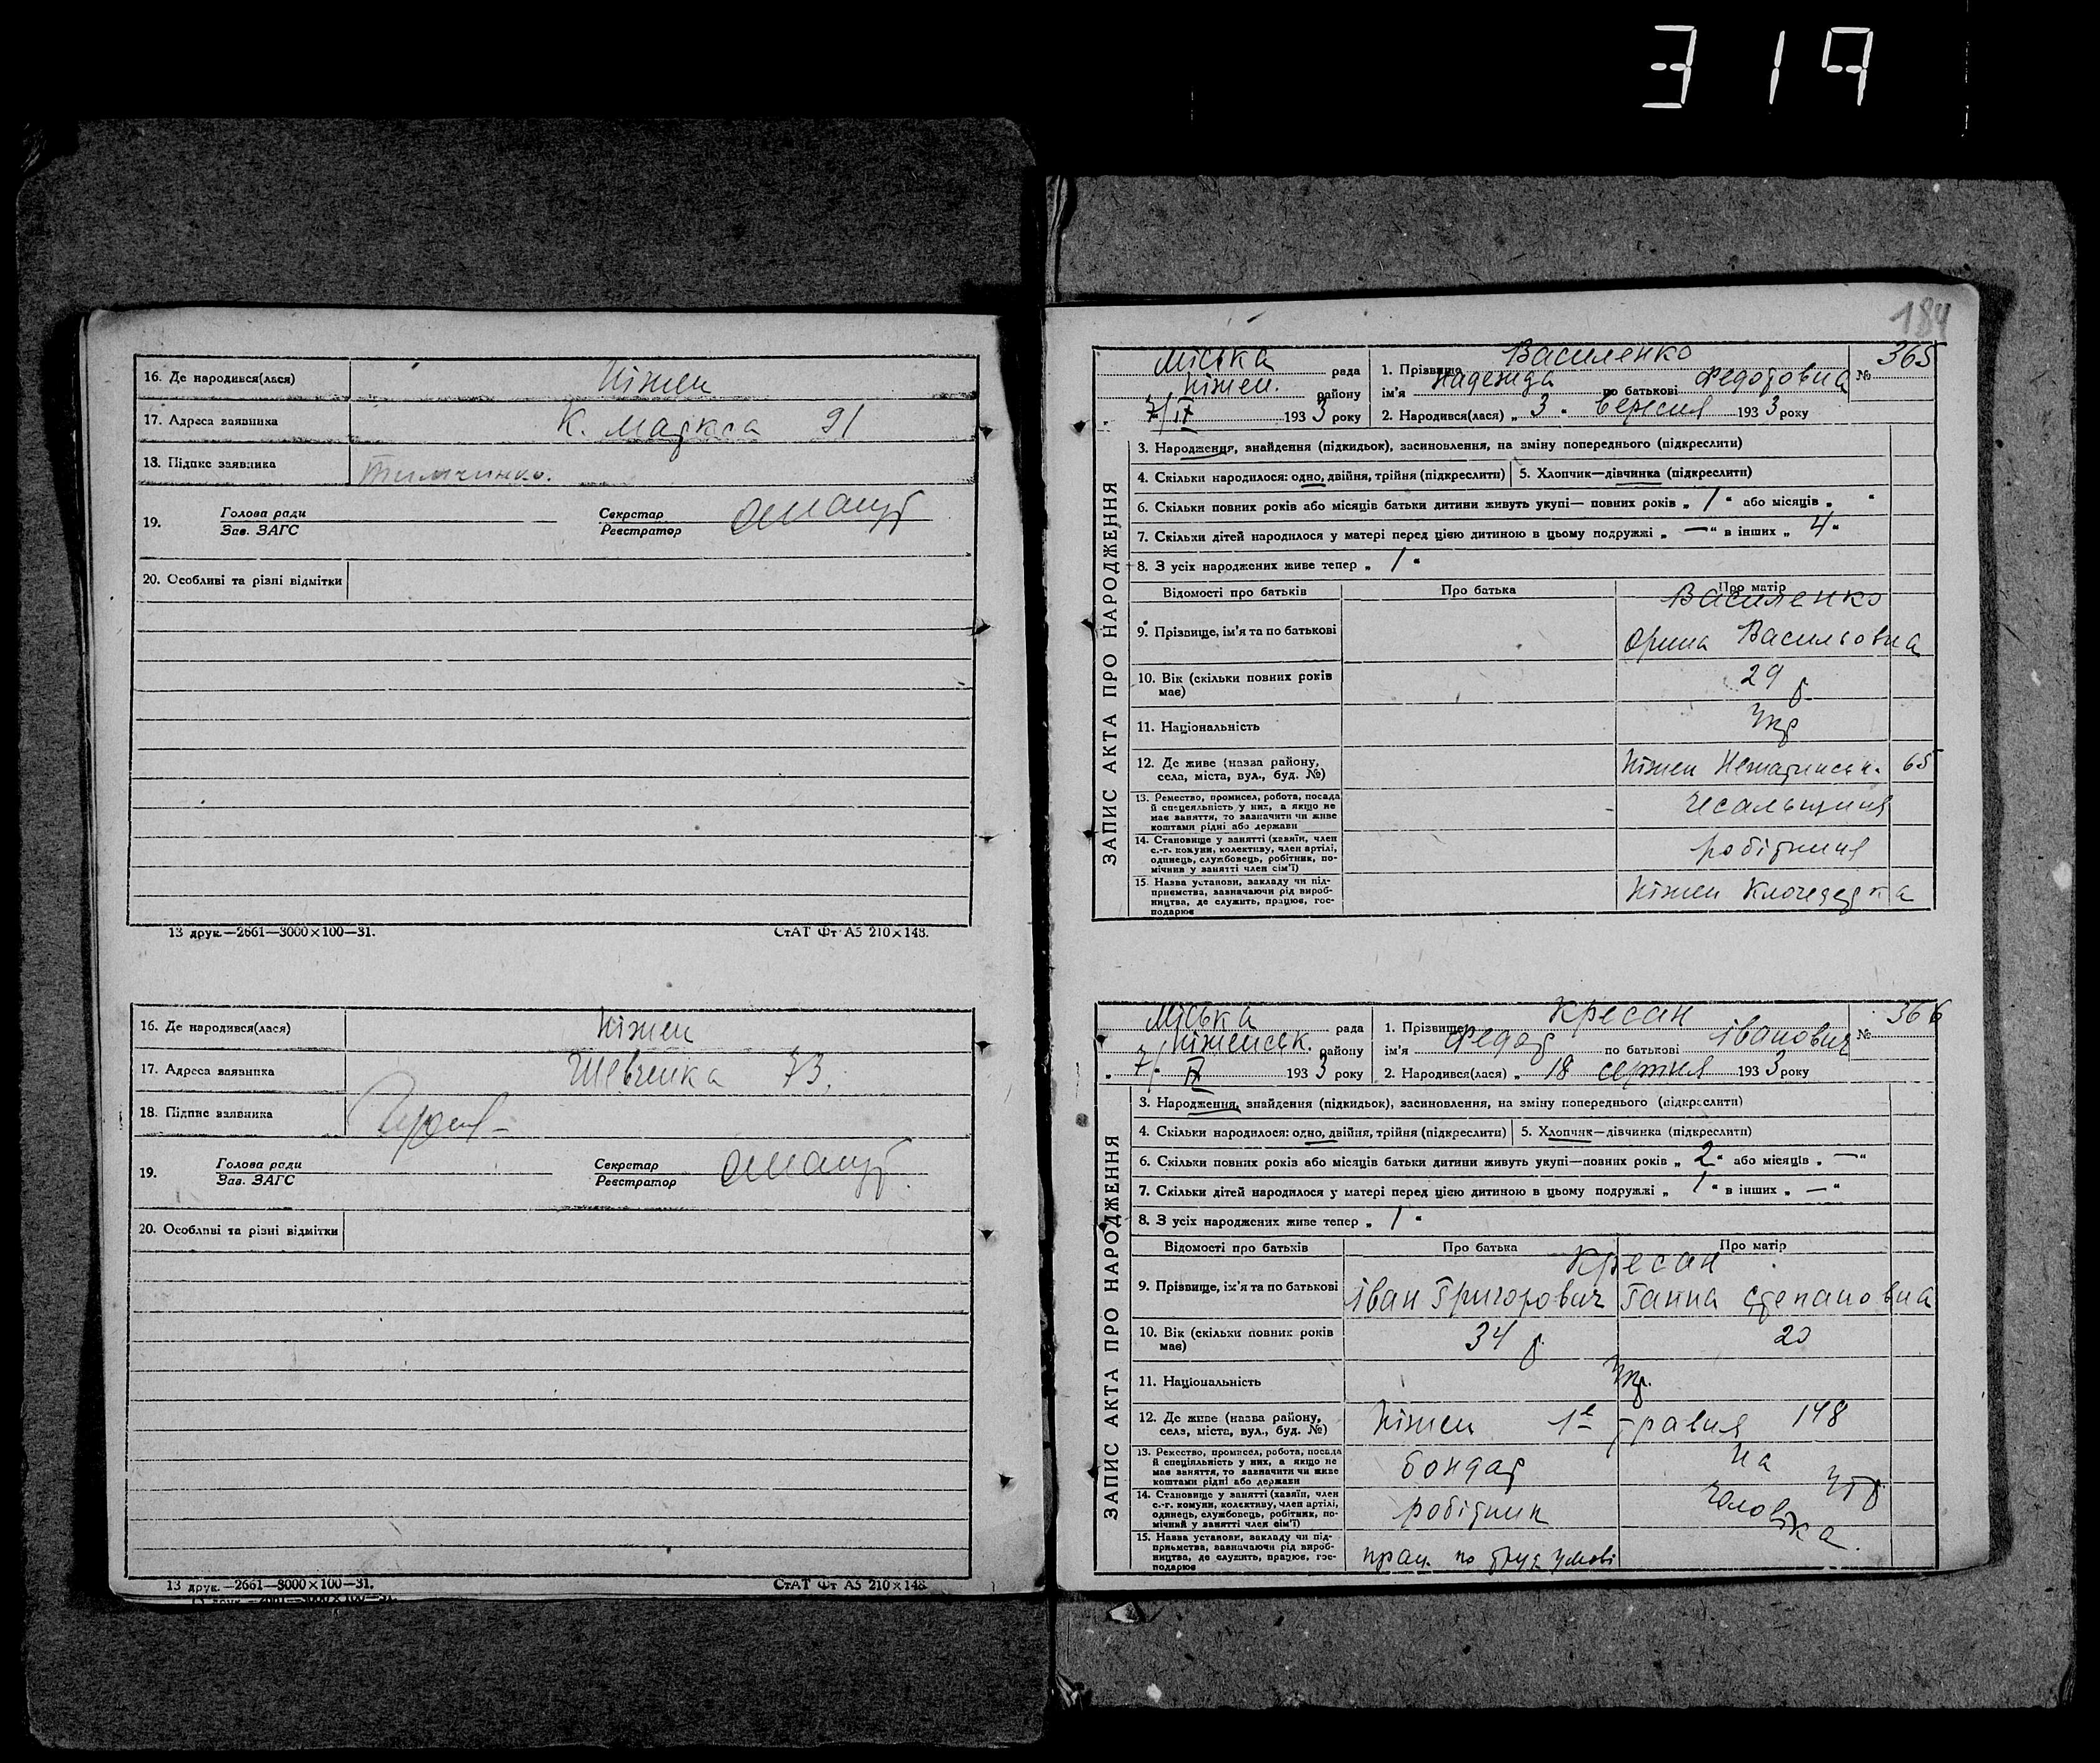 319
16. Де народився(лася) Ніжен
17. Адреса заявника К. Маркса 91
18. Підпис заявника Тимченко.
19. Голова ради Секретар
Зав. ЗАГС Реєстратор
20. Особливі та різні відмітки
13 друк.—2661—3000×100—31. СтАТ Фт А5 210×148.
16. Де народився(лася) Ніжен
17. Адреса заявника Шевченка 73.
18. Підпис заявника
19. Голова ради Секретар
Зав. ЗАГС Реєстратор
20. Особливі та різні відмітки
13 друк.—2661—3000×100—31. СтАТ Фт А5 210×148
184
ЗАПИС АКТА ПРО НАРОДЖЕННЯ
Міська рада 1. Прізвище Василенко № 365
Ніжен. району ім'я Надежда по батькові Федотовна
7/IX 1933 року 2. Народився(лася) „ 3 " Вересня 1933 року
3. Народження, знайдення (підкидьок), засиновлення, на зміну попереднього (підкреслити)
4. Скільки народилося: одно, двійня, трійня (підкреслити) 5. Хлопчик—дівчинка (підкреслити)
6. Скільки повних років або місяців батьки дитини живуть укупі— повних років „ 1 " або місяців „ "
7. Скільки дітей народилося у матері перед цією дитиною в цьому подружжі „ — " в інших „ 4 "
8. З усіх народжених живе тепер „ 1 "
Відомості про батьків Про батька Про матір
Василенко
9. Прізвище, ім'я та по батькові Орина Васильовна
10. Вік (скільки повних років має) 29 р
11. Національність Укр
12. Де живе (назва району, села, міста, вул., буд. №) Ніжен 65
13. Ремество, промисел, робота, посада й спеціяльність у них, а якщо не має заняття, то зазначити чи живе коштами рідні або держави Чесальщиця
14. Становище у занятті (хазяїн, член с.-г. комуни, колективу, член артілі, одинець, службовець, робітник, помічник у занятті член сім'ї) робітниця
15. Назва установи, закладу чи підприємства, зазначаючи рід виробництва, де служить, працює, господарює Ніжен
ЗАПИС АКТА ПРО НАРОДЖЕННЯ
Міська рада 1. Прізвище Кресан № 366
Ніженськ. району ім'я Федор по батькові Іванович
„ 7/" IX 1933 року 2. Народився(лася) „ 18 серпня 1933 року
3. Народження, знайдення (підкидьок), засиновлення, на зміну попереднього (підкреслити)
4. Скільки народилося: одно, двійня, трійня (підкреслити) 5. Хлопчик—дівчинка (підкреслити)
6. Скільки повних років або місяців батьки дитини живуть укупі—повних років „ 2 " або місяців „ — "
7. Скільки дітей народилося у матері перед цією дитиною в цьому подружжі „ 1 " в інших „ — "
8. З усіх народжених живе тепер „ 1 "
Відомості про батьків Про батька Про матір
Кресан
9. Прізвище, ім'я та по батькові Іван Григорович Ганна Степановна
10. Вік (скільки повних років має) 34 р. 20
11. Національність Укр.
12. Де живе (назва району, села, міста, вул., буд. №) Ніжен 1е травня 148
13. Ремество, промисел, робота, посада й спеціяльність у них, а якщо не має заняття, то зазначити чи живе коштами рідні або держави бондар на утр
14. Становище у занятті (хазяїн, член с.-г. комуни, колективу, член артілі, одинець, службовець, робітник, помічний у занятті член сім'ї) робітник чоловіка.
15. Назва установи, закладу чи підприємства, зазначаючи рід виробництва, де служить, працює, господарює прац. по труд умові